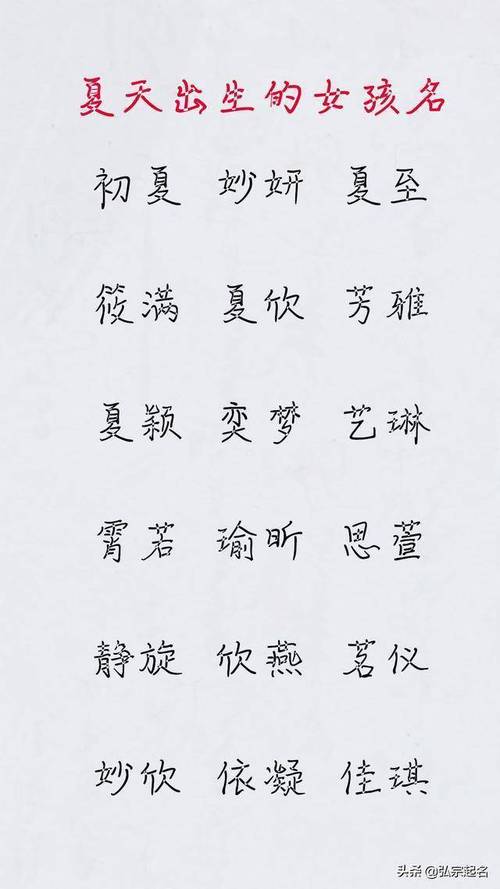 夏天出生的女孩名
初夏 妙妍 夏至
筱满 夏欣 芳雅
夏颖 奕梦 艺琳
霄若 瑜昕 思萱
静旋 欣燕 茗仪
妙欣 依凝 佳琪
头条@弘宗起名